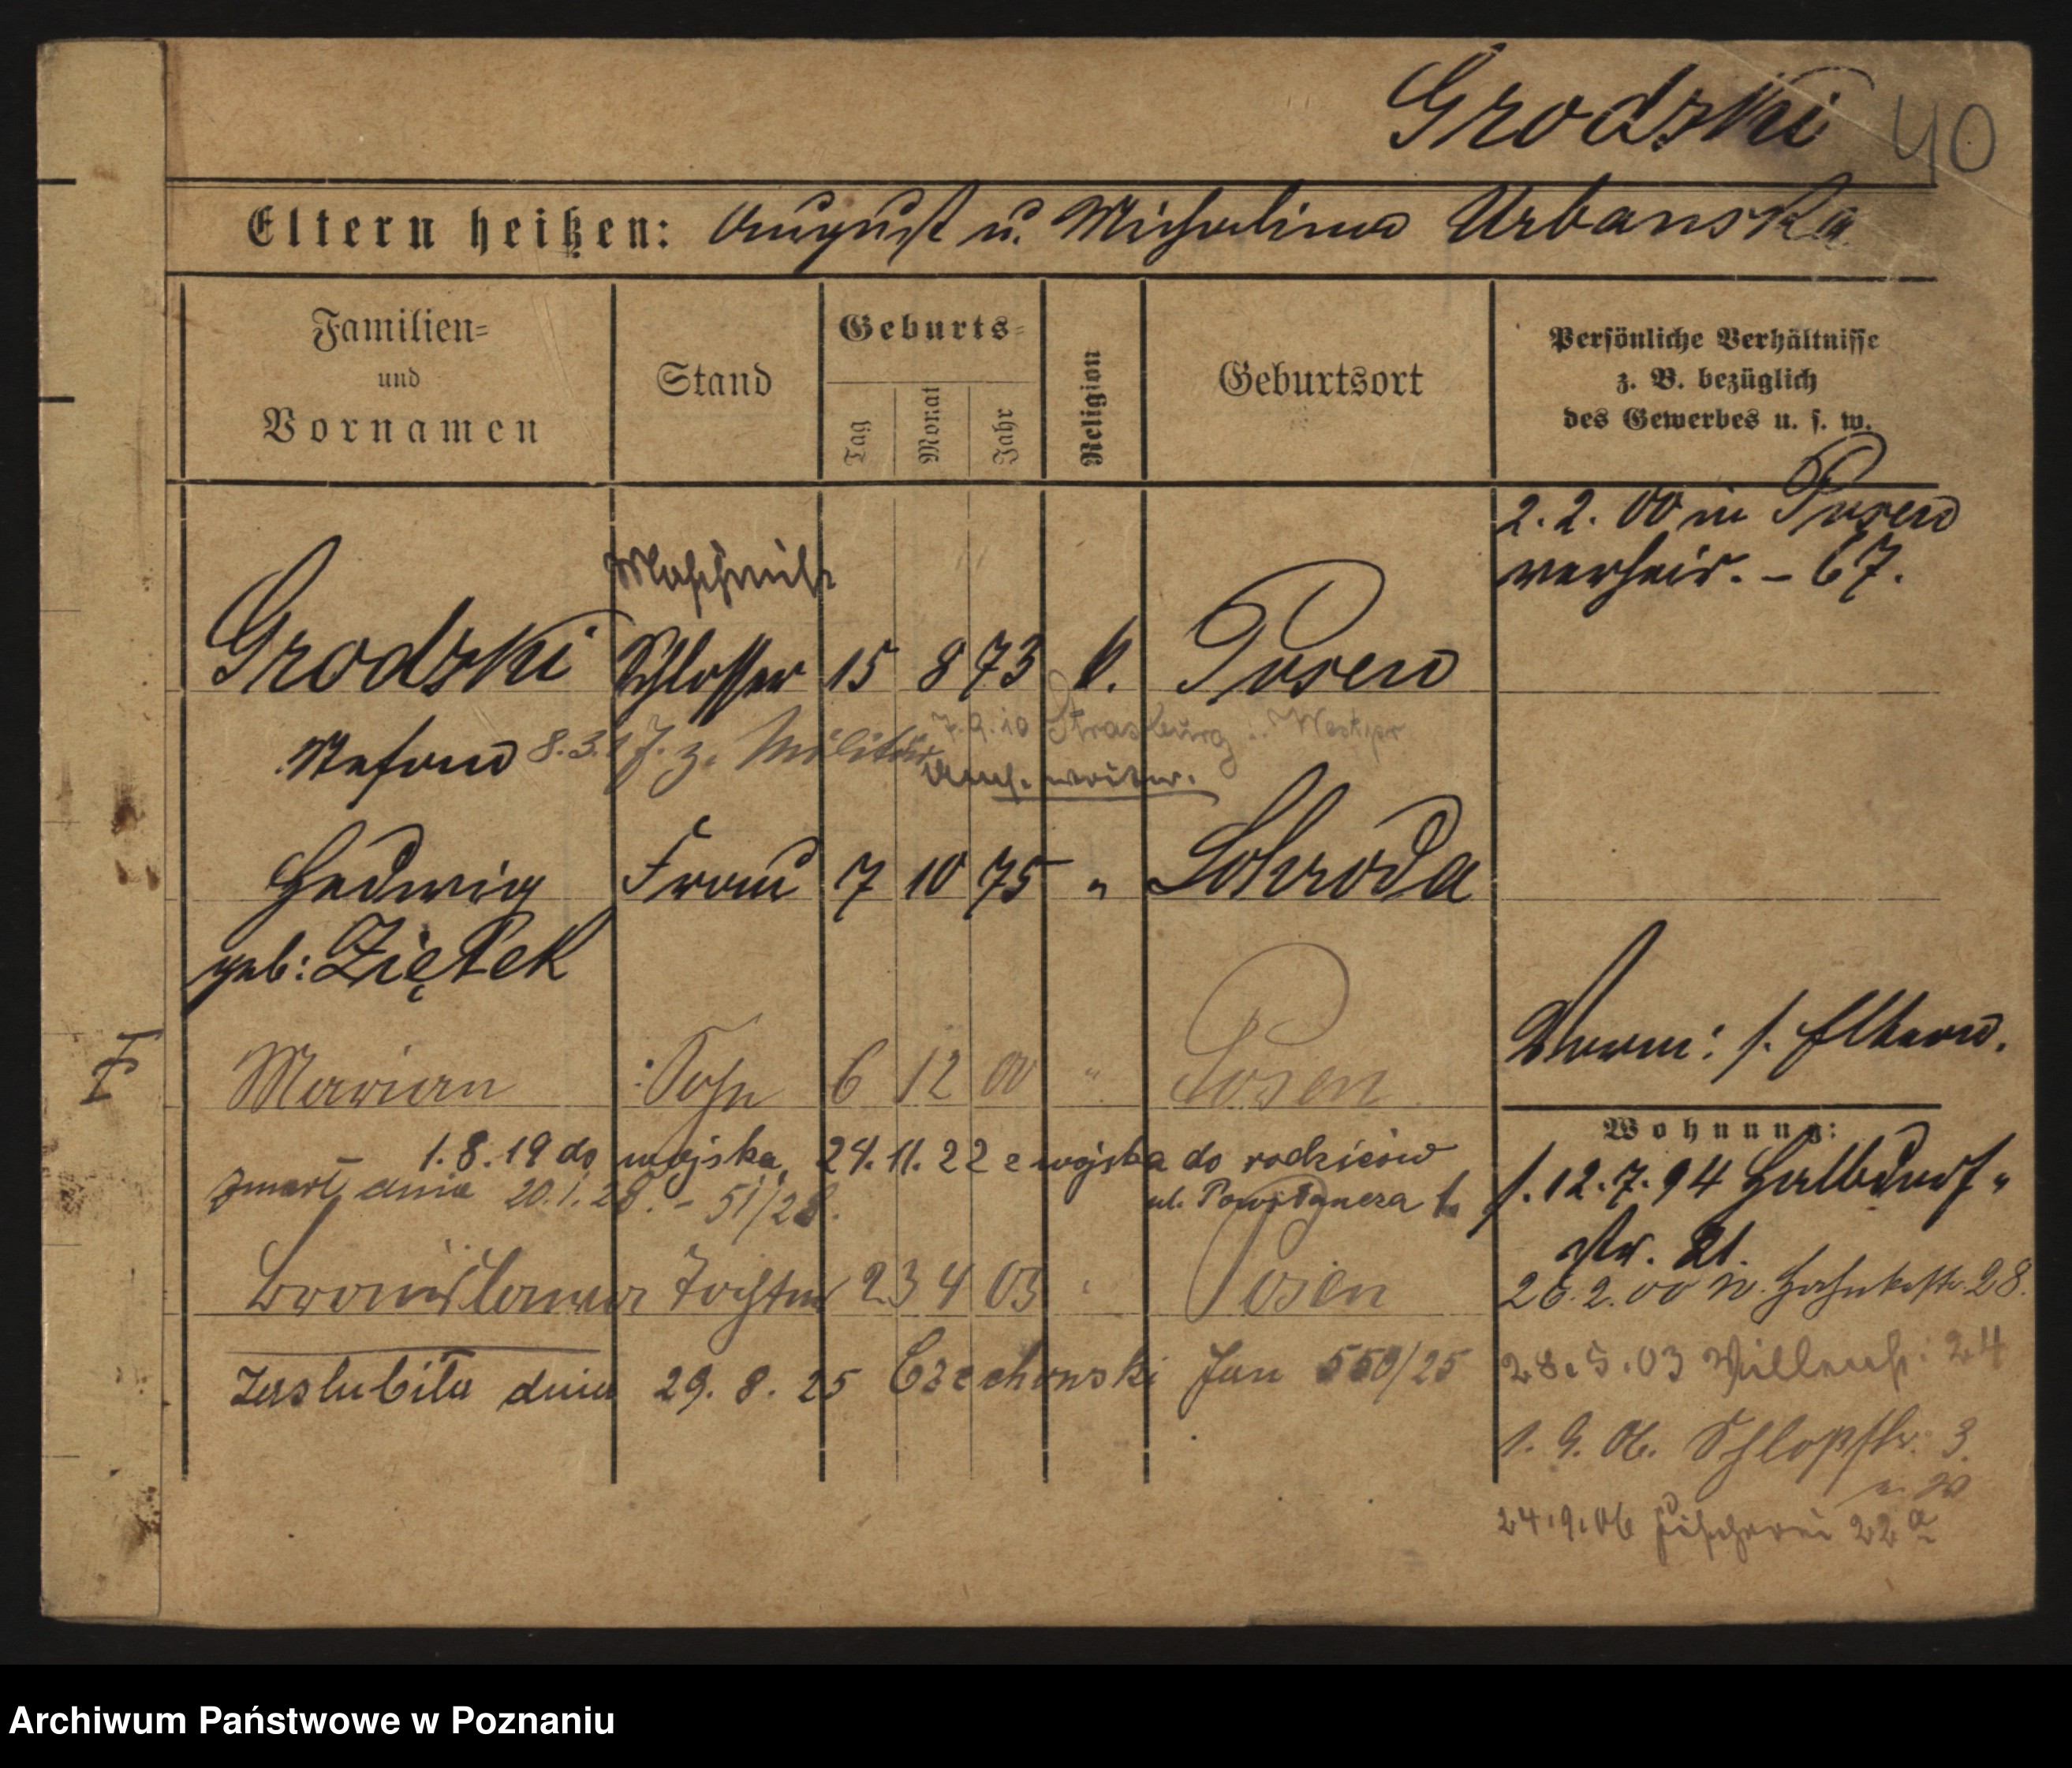 Grodzki 40
Eltern heißen: August u. Michalina Urbanska
Familien=
und
Vornamen
Stand
Geburts=
Tag
Monat
Jahr
Religion
Geburtsort
Persönliche Verhältnisse
z. B. bezüglich
des Gewerbes u. s. w.
2. 2. 00 in Posen
verheir. - 67.
Maschinist
Grodzki Schlosser 15 8 73 k. Posen
Stefan 8.3. z. Militär 7.9.10 Strasburg Westpr
Hedwig Frau 7 10 75 " Schroda
geb: Ziętek
Marian Sohn 6 12 00 " Posen
1.8.19 do wojska, 24.11.22 z wojska do rodziców
zmarł dnia 20.1.28. - 51/28. ul. Powstańcza
Bronislawa Tochter 23 4 03 Posen
Zaslubiła dnia 29. 8. 25 Czechowski Jan 550/25
Verm: s. Eltern.
Wohnung:
s. 12.7.94 Halbdorf-
str. 21.
26.2.00 n. 28.
28.5.03 24
1. 9. 06. Schloßstr. 3.
24.9.06 Fischerei 22 a